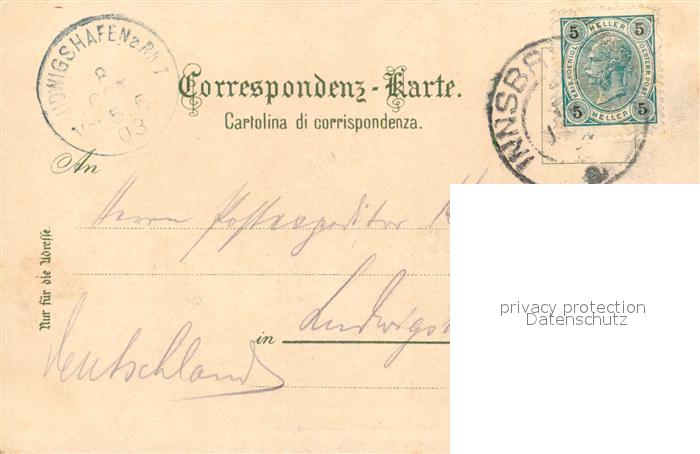 LUDWIGSHAFEN a. RH. 1
03
Correspondenz-Karte.
Cartolina di corrispondenza.
INNSBR
5 HELLER 5
KAIS. KOENIGL. OESTERR. POST
5 HELLER 5
An
Herrn Postexpeditor
Nur für die Adresse.
in Ludwigs
Deutschland
privacy protection
Datenschutz